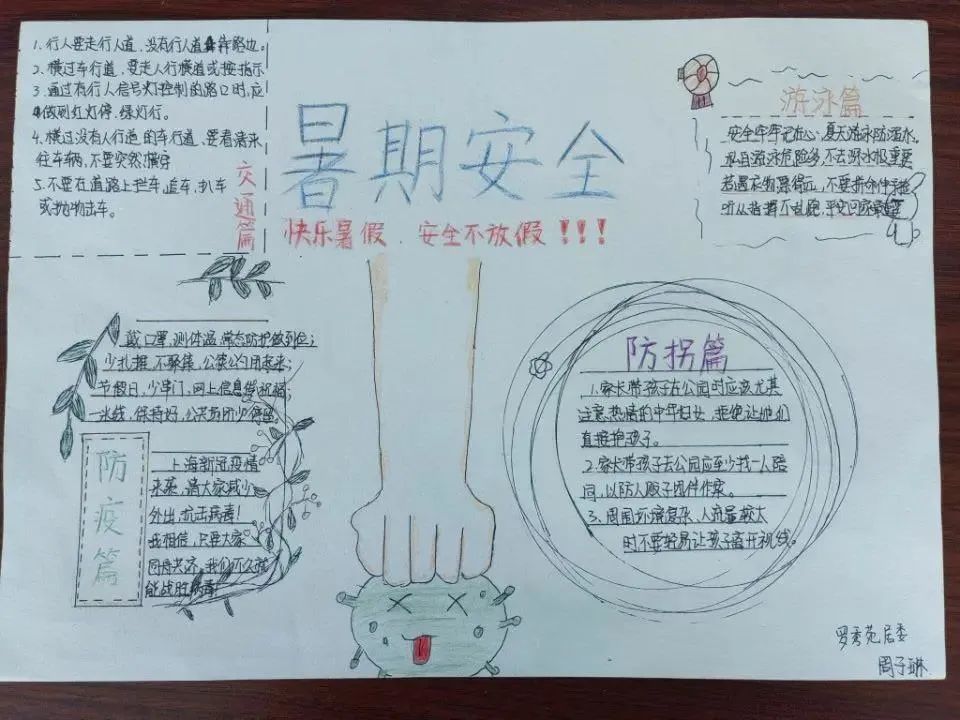 1. 行人要走行人道,没有行人道靠路边。
2. 横过车行道,要走人行横道或按指示
3. 通过有行人信号灯控制的路口时,应
做到红灯停,绿灯行。
4. 横过没有人行道的车行道,要看清来
往车辆,不要突然横穿
5. 不要在道路上拦车,追车,扒车
或抛物击车。
交通篇
暑期安全
快乐暑假.安全不放假!!!
游泳篇
安全牢牢记在心,夏天游泳防溺水,
私自游泳危险多,不去野水极重要
听从指挥不乱跑,平安回家
戴口罩,测体温,常态防护做到位;
少扎堆,不聚集,公筷公勺用起来;
节假日,少串门,网上信息送祝福;
一米线,保持好,公共场所少停留。
防疫篇
上海新冠疫情
来袭,请大家减少
外出,抗击病毒!
我相信,只要大家
同舟共济,我们不久就
能战胜病毒!
防拐篇
1. 家长带孩子在公园时应该尤其
注意热情的中年妇女,拒绝让他们
直接抱孩子。
2. 家长带孩子去公园应至少找一人陪
同,以防人贩子团伙作案。
3. 周围环境复杂、人流量较大
时不要轻易让孩子离开视线。
罗秀苑居委
周子琳